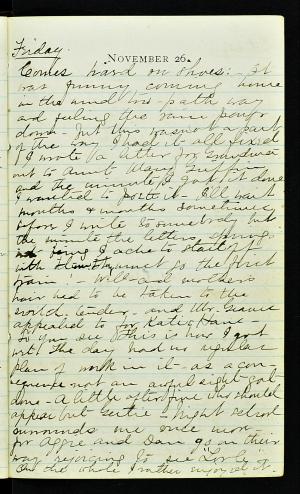 Friday.
NOVEMBER 26.
Comes hard on shoes: - It
was funny coming home
in the mud - path way
and feeling the rain pour
down - but this was not a part
of the way I had it all fixed
I wrote a letter for Grandma
out to Aunt Mary
and the minute I got it done
I wanted to post it. I'll wait
months & months sometimes
before I write to somebody but
the minute the letters
I ache to start it
with it must go the first
train! - Will and mother's
had to be taken to the
world. and Mr.
appealed to for Katie
So you see this is how I got
wet. The day had no regular
plan of work in it - as a con-
sequence not an awful sight got
done - A little after five who should
appear but Gertie - Night school
surrounds me once more
for Aggie and Dan go on their
way rejoicing to see
On the whole I rather enjoyed it.